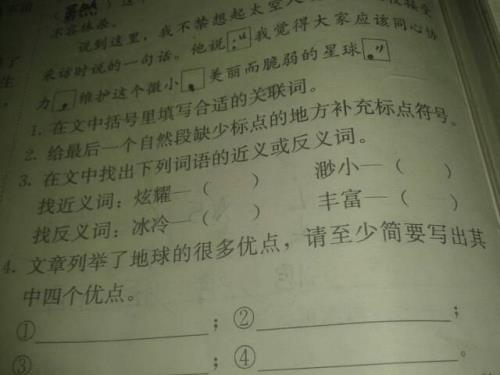 不容抹杀。
说到这里，我不禁想起太空人
采访时说的一句话。他说：“我觉得大家应该同心协
力，维护这个微小、美丽而脆弱的星球。”
1. 在文中括号里填写合适的关联词。
2. 给最后一个自然段缺少标点的地方补充标点符号。
3. 在文中找出下列词语的近义或反义词。
找近义词：炫耀—（ ） 渺小—（ ）
找反义词：冰冷—（ ） 丰富—（ ）
4. 文章列举了地球的很多优点，请至少简要写出其
中四个优点。
①；②；
③；④。